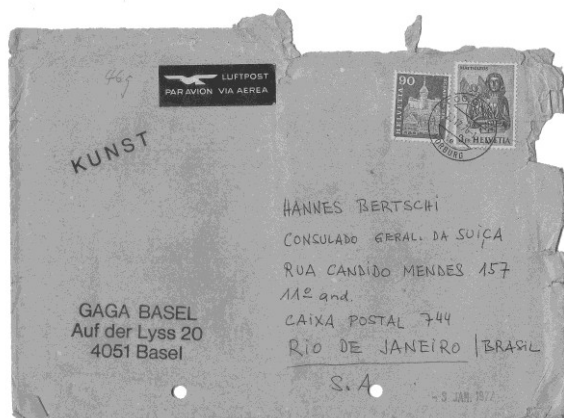 46g
LUFTPOST
PAR AVION VIA AEREA
KUNST
90
HELVETIA
HELVETIA
HANNES BERTSCHI
CONSULADO GERAL. DA SUIÇA
RUA CANDIDO MENDES 157
11º and.
CAIXA POSTAL 744
RIO DE JANEIRO / BRASIL
S.A.
GAGA BASEL
Auf der Lyss 20
4051 Basel